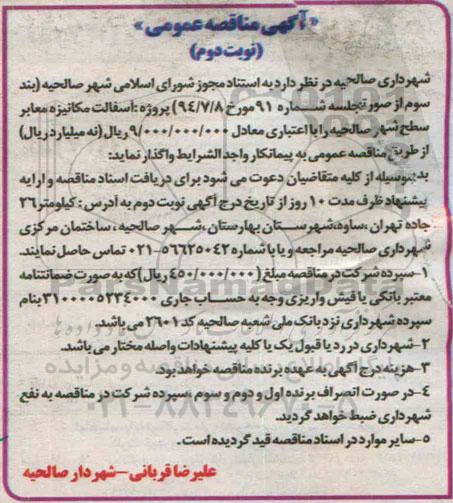 «آگهی مناقصه عمومی»
(نوبت دوم)
شهرداری صالحیه در نظر دارد به استناد مجوز شورای اسلامی شهر صالحیه (بند
سوم از صورتجلسه شماره ۹۱ مورخ ۹۴/۷/۸) پروژه : آسفالت مکانیزه معابر
سطح شهر صالحیه را با اعتباری معادل ۹/۰۰۰/۰۰۰/۰۰۰ ریال (نه میلیارد ریال)
از طریق مناقصه عمومی به پیمانکار واجد الشرایط واگذار نماید:
بدینوسیله از کلیه متقاضیان دعوت می شود برای دریافت اسناد مناقصه و ارایه
پیشنهاد ظرف مدت ۱۰ روز از تاریخ درج آگهی نوبت دوم به آدرس : کیلومتر ۲۶
جاده تهران ،ساوه،شهرستان بهارستان ،شهر صالحیه ، ساختمان مرکزی
شهرداری صالحیه مراجعه و یا با شماره ۵۶۶۲۵۰۴۲-۰۲۱ تماس حاصل نمایند.
۱-سپرده شرکت در مناقصه مبلغ (۴۵۰/۰۰۰/۰۰۰ ریال) که به صورت ضمانتنامه
معتبر بانکی یا فیش واریزی وجه به حساب جاری ۳۱۰۰۰۰۰۵۲۳۴۰۰۰ بنام
سپرده شهرداری نزد بانک ملی شعبه صالحیه کد ۲۶۰۱ می باشد.
۲-شهرداری در رد یا قبول یک یا کلیه پیشنهادات واصله مختار می باشد.
۳-هزینه درج آگهی به عهده برنده مناقصه خواهد بود.
۴-در صورت انصراف برنده اول و دوم و سوم ،سپرده شرکت در مناقصه به نفع
شهرداری ضبط خواهد گردید.
۵-سایر موارد در اسناد مناقصه قید گردیده است.
علیرضا قربانی-شهردار صالحیه
ParsNamadData